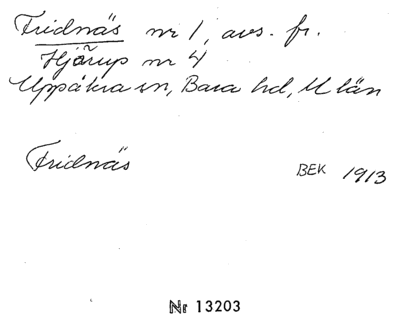 Fridnäs nr 1, avs. fr.
Hjärup nr 4
Uppåkra sn, Bara hd, M län
Fridnäs BEK 1913
Nr 13203